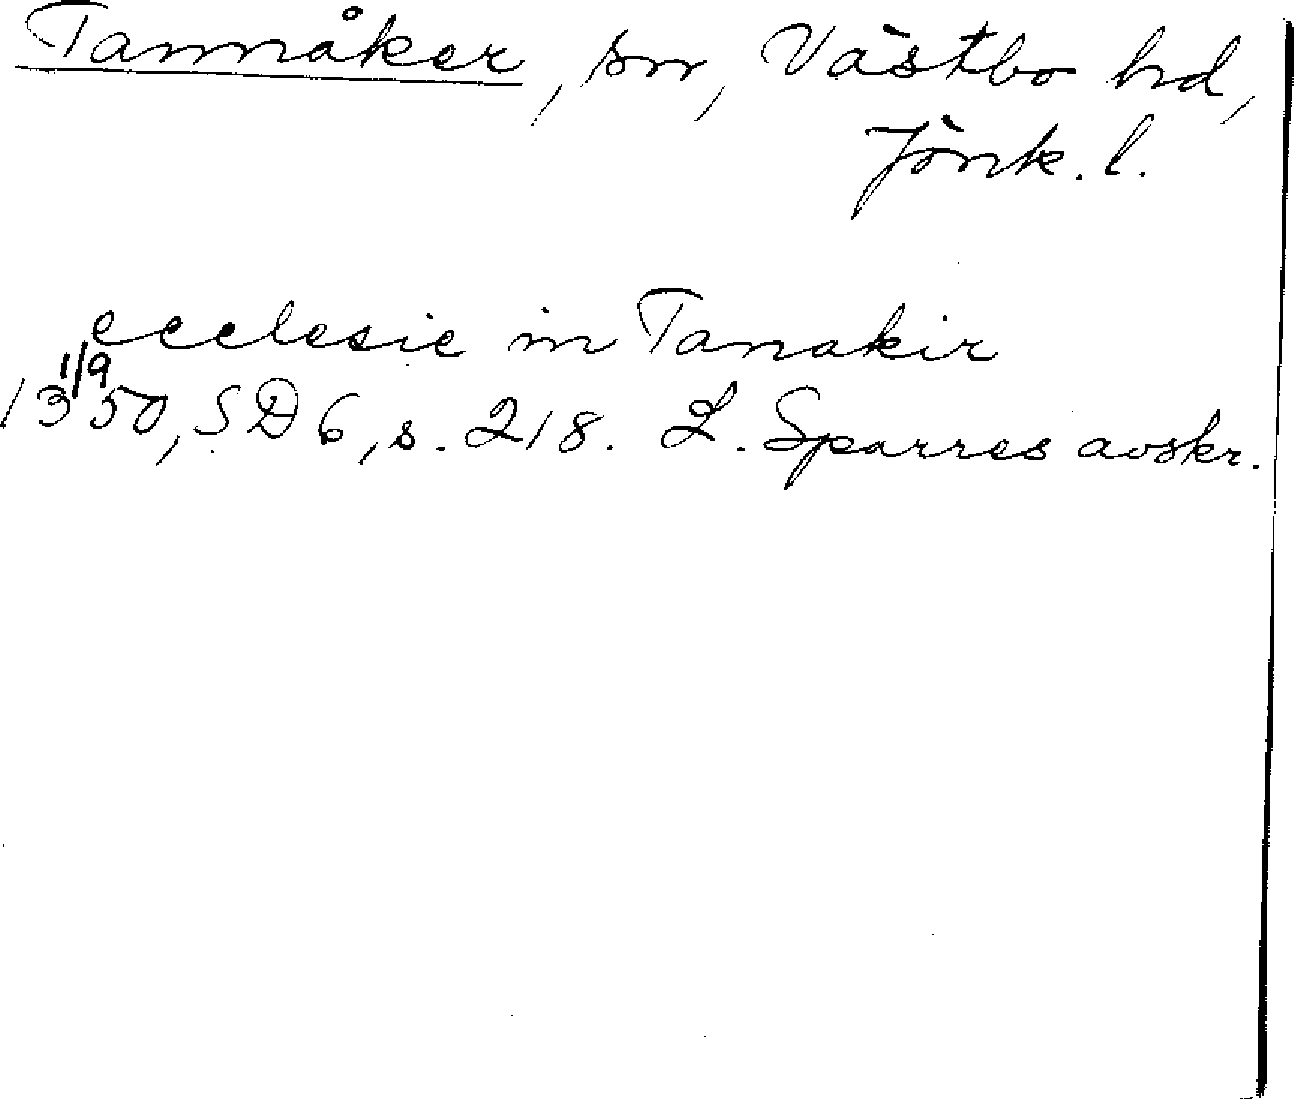 Tannåker, sn, Västbo hd,
Jönk. l.
ecclesie in Tanakir
1/9
1350, SD 6, s. 218. L. Sparres avskr.